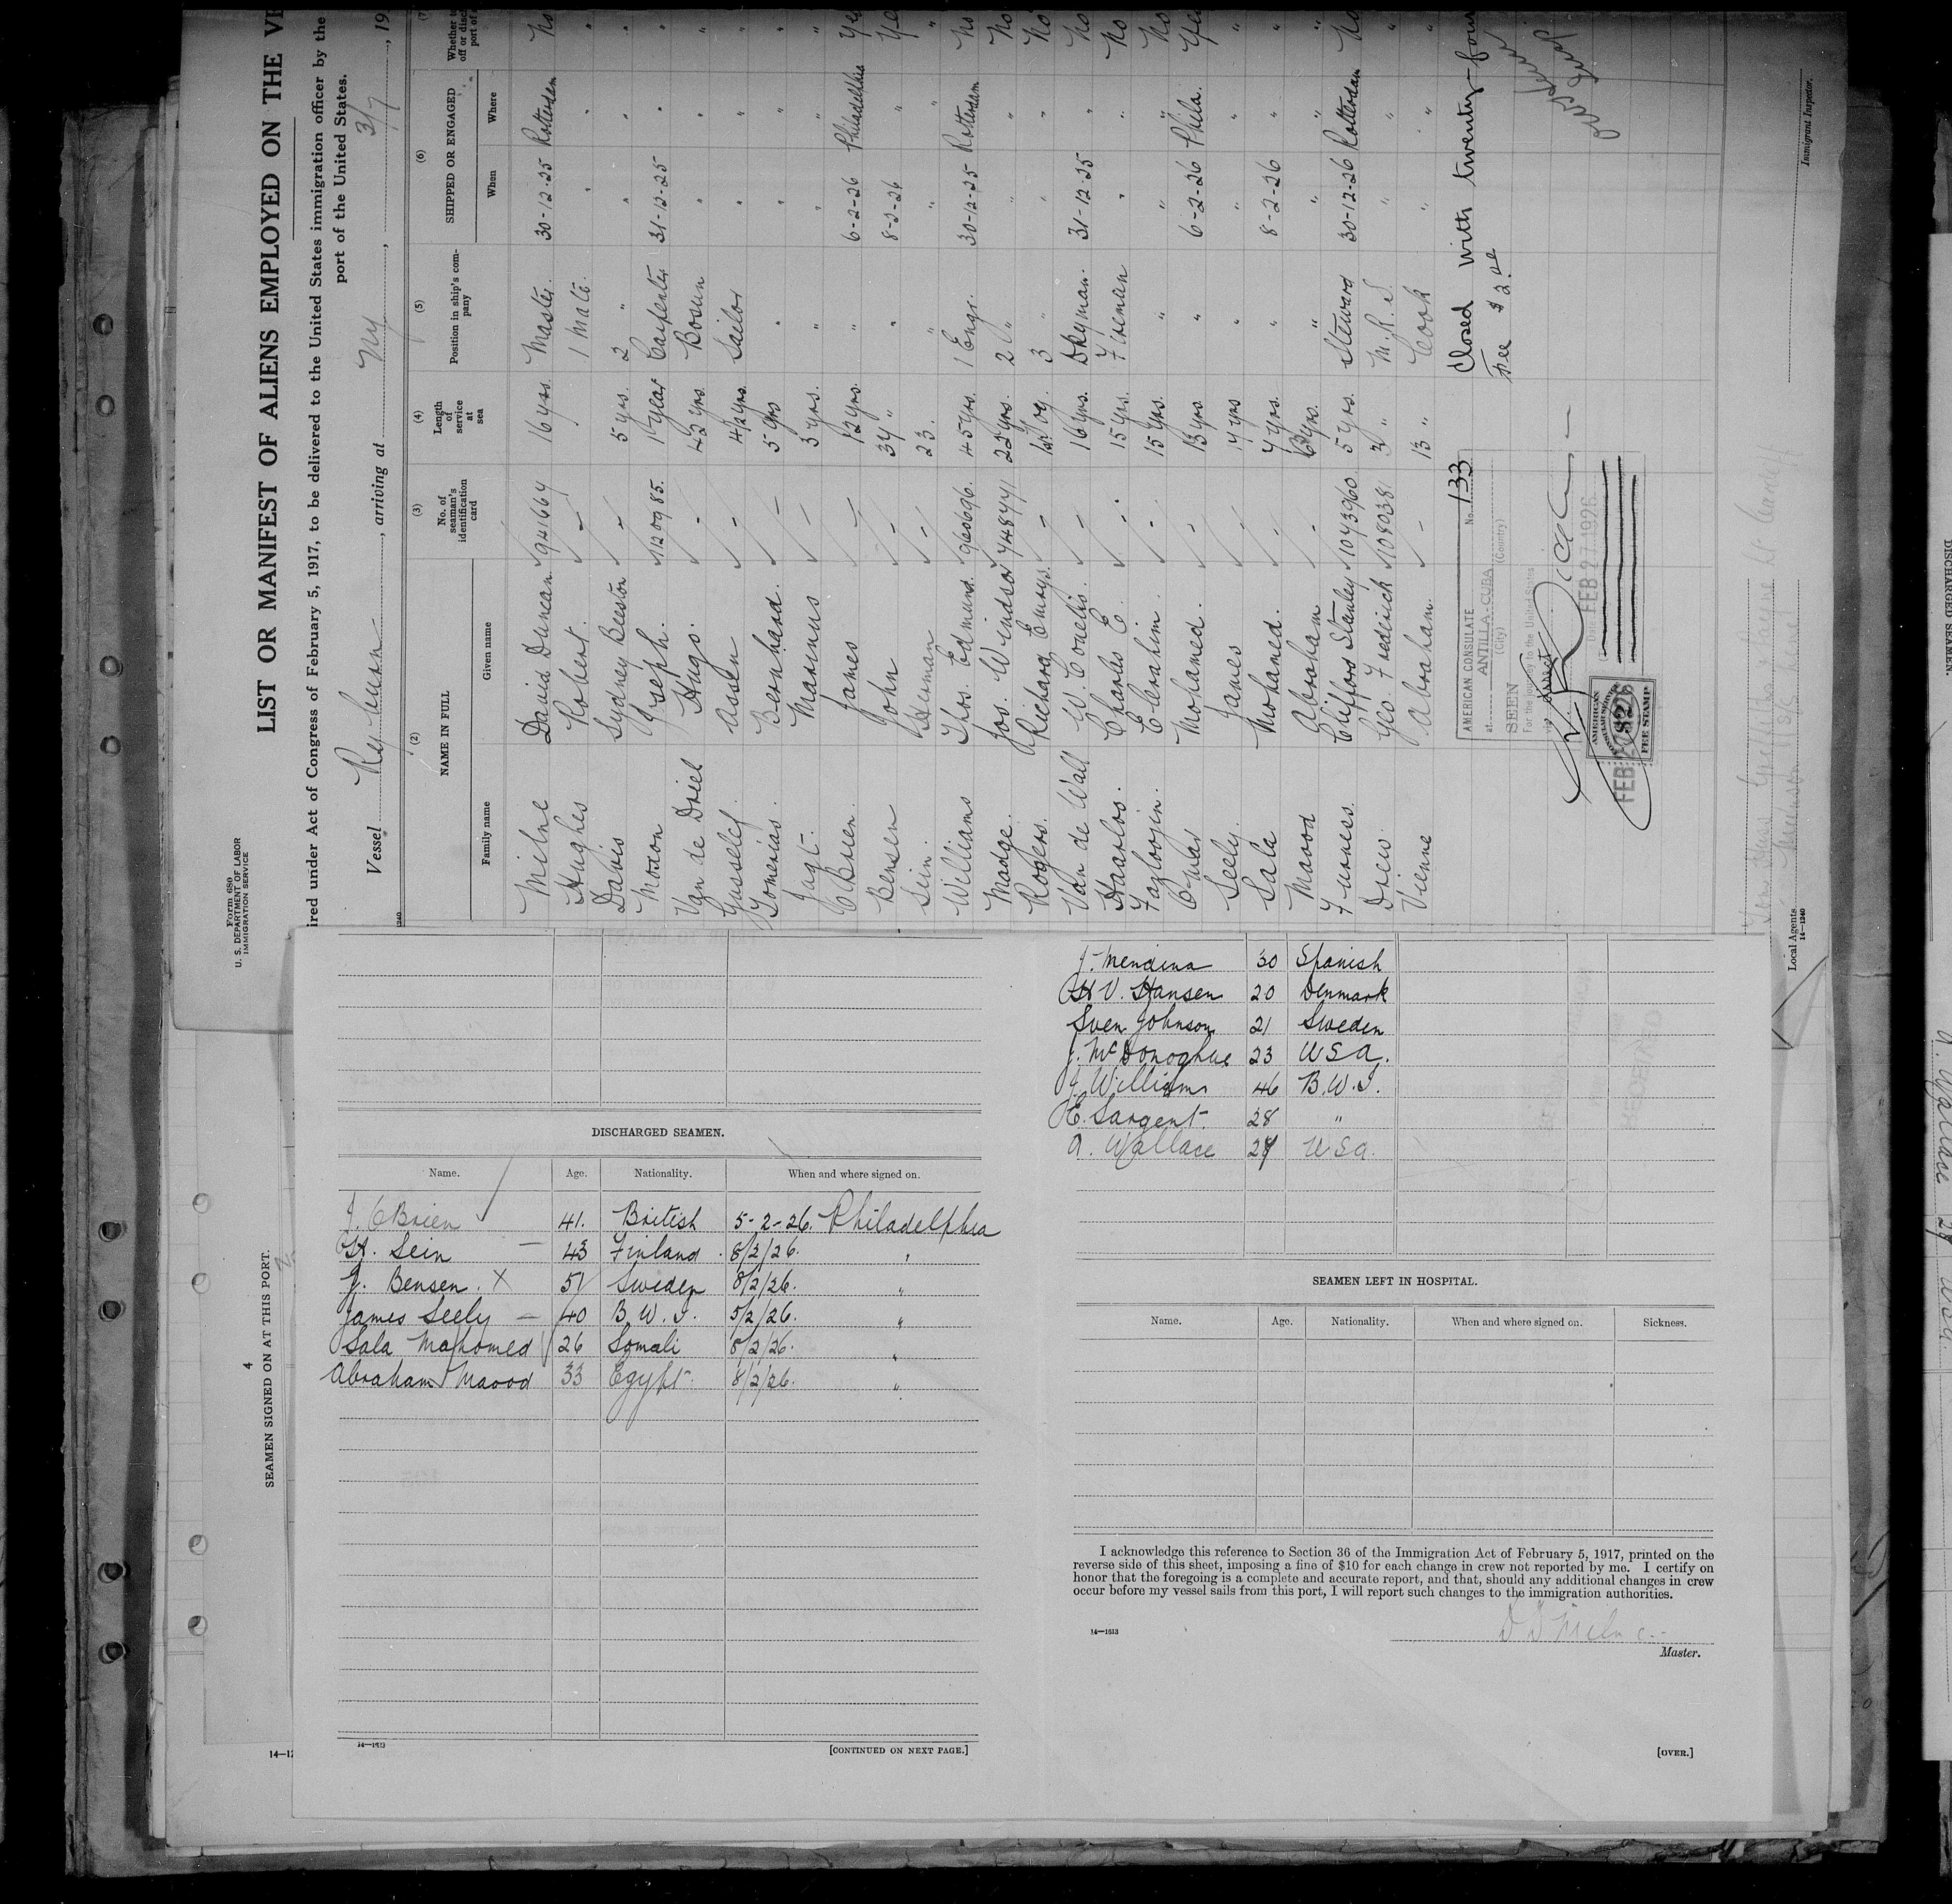 Form 680
U. S. DEPARTMENT OF LABOR
IMMIGRATION SERVICE
LIST OR MANIFEST OF ALIENS EMPLOYED ON THE VE
ired under Act of Congress of February 5, 1917, to be delivered to the United States immigration officer by the
port of the United States.
Vessel , arriving at NY , 3/7 , 19
(2) (3) (4) (5) (6) (7)
NAME IN FULL No. of seaman's identification card Length of service at sea Position in ship's company SHIPPED OR ENGAGED
Family name Given name When Where
Milne David Duncan 941664 16 yrs. Master. 30-12-25 Rotterdam No
Hughes Robert. - " 1 Mate. " "
Davis Sydney Beeston - 5 yrs. 2 " " "
Morton Joseph. 1120985. 1 year Carpenter 31-12-25 "
Van de Driel Hugo. - 42 yrs. Bosun " "
Assen - 4/2 yrs. Sailor " "
Bernhard. - 5 yrs " " "
Jagt. Marinus - 3 yrs. " " "
O'Brien. James - 12 yrs. " 6-2-26 Philadelphia Yes
Bensen John - 34 " " 8-2-26 " Yes
Sein. Herman - 23. " " " "
Williams Thos. Edmund. 960696. 45 yrs. 1 Engr. 30-12-25 Rotterdam No
Madge. Jos. Windsor 748441 22 yrs. 2 " " " No
Rogers. Richard Emrys. - 3 " " " No
Van de Wall W. Cornelis. - 16 yrs. Dkyman. 31-12-25 " No
Haarloo. Charles E. - 15 yrs. Fireman " " No
Fazloojin. Ebrahim. - 15 yrs. " " " No
Omar Mohamed. - 13 yrs. " 6-2-26 Phila. Yes
Seely. James 14 yrs " " "
Sala Mohamed. - 4 yrs. " 8-2-26 " "
Maood Abraham - yrs. " " " "
Furness. Clifford Stanley 1043960. 5 yrs. Steward 30-12-26 Rotterdam No
Drew. Geo. Frederick 1080381 3 " M. R. S. " " "
Vienne Abraham. - 13 " Cook " "
Closed with twenty-four
Fee $ 2.00
AMERICAN CONSULATE No. 133
at ANTILLA-CUBA
(City) (Country)
SEEN
For the journey to the United States
Date FEB 27 1926
AMERICAN CONSULAR SERVICE
$2
FEE STAMP
Local Agents
14—1240
Immigrant Inspector.
4
SEAMEN SIGNED ON AT THIS PORT.
14—12
DISCHARGED SEAMEN.
Name. Age. Nationality. When and where signed on.
J. O'Brien 41. British 5-2-26. Philadelphia
H. Sein — 43 Finland. 8/2/26. "
J. Bensen. X 51 Sweden 8/2/26. "
James Seely — 40 B. W. I. 5/2/26. "
Sala Mahomed 26 Somali 8/2/26. "
Abraham Maood 33 Egypt. 8/2/26. "
14—1613
[CONTINUED ON NEXT PAGE.]
J. Mendina 30 Spanish
H V. Hansen 20 Denmark
Sven Johnson 21 Sweden
J. McDonoghue 23 USA.
J. Williams 46 B.W.I.
E. Sargent. 28 "
A. Wallace 27 USA.
SEAMEN LEFT IN HOSPITAL.
Name. Age. Nationality. When and where signed on. Sickness.
I acknowledge this reference to Section 36 of the Immigration Act of February 5, 1917, printed on the
reverse side of this sheet, imposing a fine of $10 for each change in crew not reported by me. I certify on
honor that the foregoing is a complete and accurate report, and that, should any additional changes in crew
occur before my vessel sails from this port, I will report such changes to the immigration authorities.
14—1613
D D Milne
Master.
[OVER.]
DISCHARGED SEAMEN.